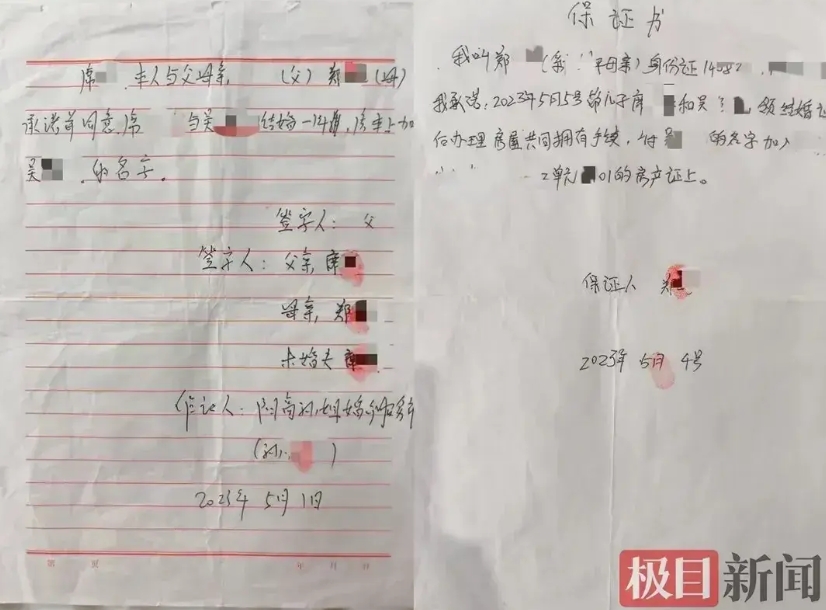 席 本人与父母亲 (父) 郑 (母)
承诺并同意席 与吴 结婚一年后,房本上加
吴 的名字。
签字人: 父
签字人: 父亲, 席
母亲, 郑
未婚夫 席
作证人: 阳高 婚介服务
(孙 )
2023年 5月 1日
第 页 年 月 日
保证书
我叫郑 (系 母亲) 身份证 14
我承诺:2023年5月5号给儿子席 和吴 领结婚证
后办理房屋共同拥有手续,付吴 的名字加入
2单元 01的房产证上。
保证人 郑
2023年 5月 4号
极目新闻